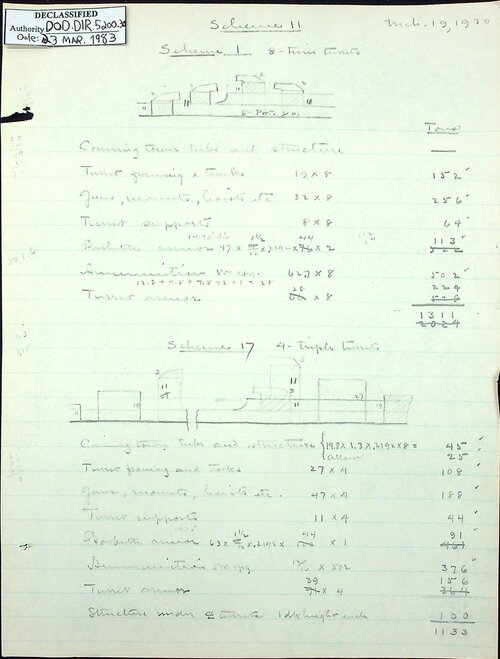 DECLASSIFIED
Authority DOD.DIR.5200.30
Date: 23 MAR. 1983
Scheme 11
Mch. 19, 1930
Scheme 1 8-twin turrets
Tons
Conning tower tube and structure —
Turret framing & tracks 19 x 8 152
Guns, mounts, hoists etc 32 x 8 256
Turret supports 8 x 8 64
Barbette armor 47 x 1 1/2 x 2192 x 44 x 2 113
Ammunition 500 r.p.g. 627 x 8 502
13.8 + 4.5 + 9.8 + 2 + 1 = 28
224
Turret armor 28 x 8 528
1311
2024
Scheme 17 4-Triple turrets
Conning tower tube and structure { 19.8 x 1.3 x .2192 x 8 = 45
allow 25
Turret framing and tracks 27 x 4 108
Guns, mounts, hoists etc. 47 x 4 188
Turret supports 11 x 4 44
Barbette armor 63 x 1 1/2 x .2192 x 44 x 1 91
Ammunition 500 rpg 12/16 x 502 376
39 156
Turret armor 91 x 4 364
Structure under 2 turrets 1 dk height each 100
1133